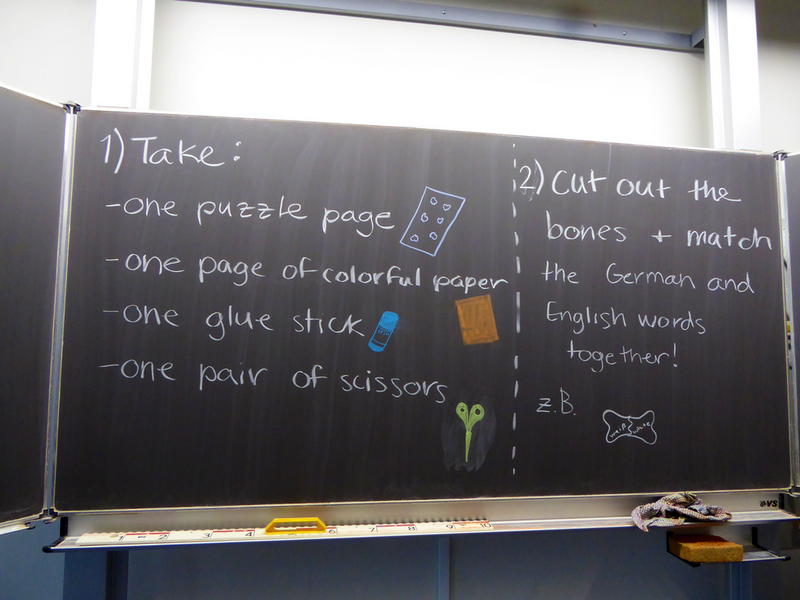 1) Take:
-one puzzle page
-one page of colorful paper
-one glue stick
-one pair of scissors
2) Cut out the
bones + match
the German and
English words
together!
z.B.
weiß white
1 2 3 4 6 7 8 9 10
VS